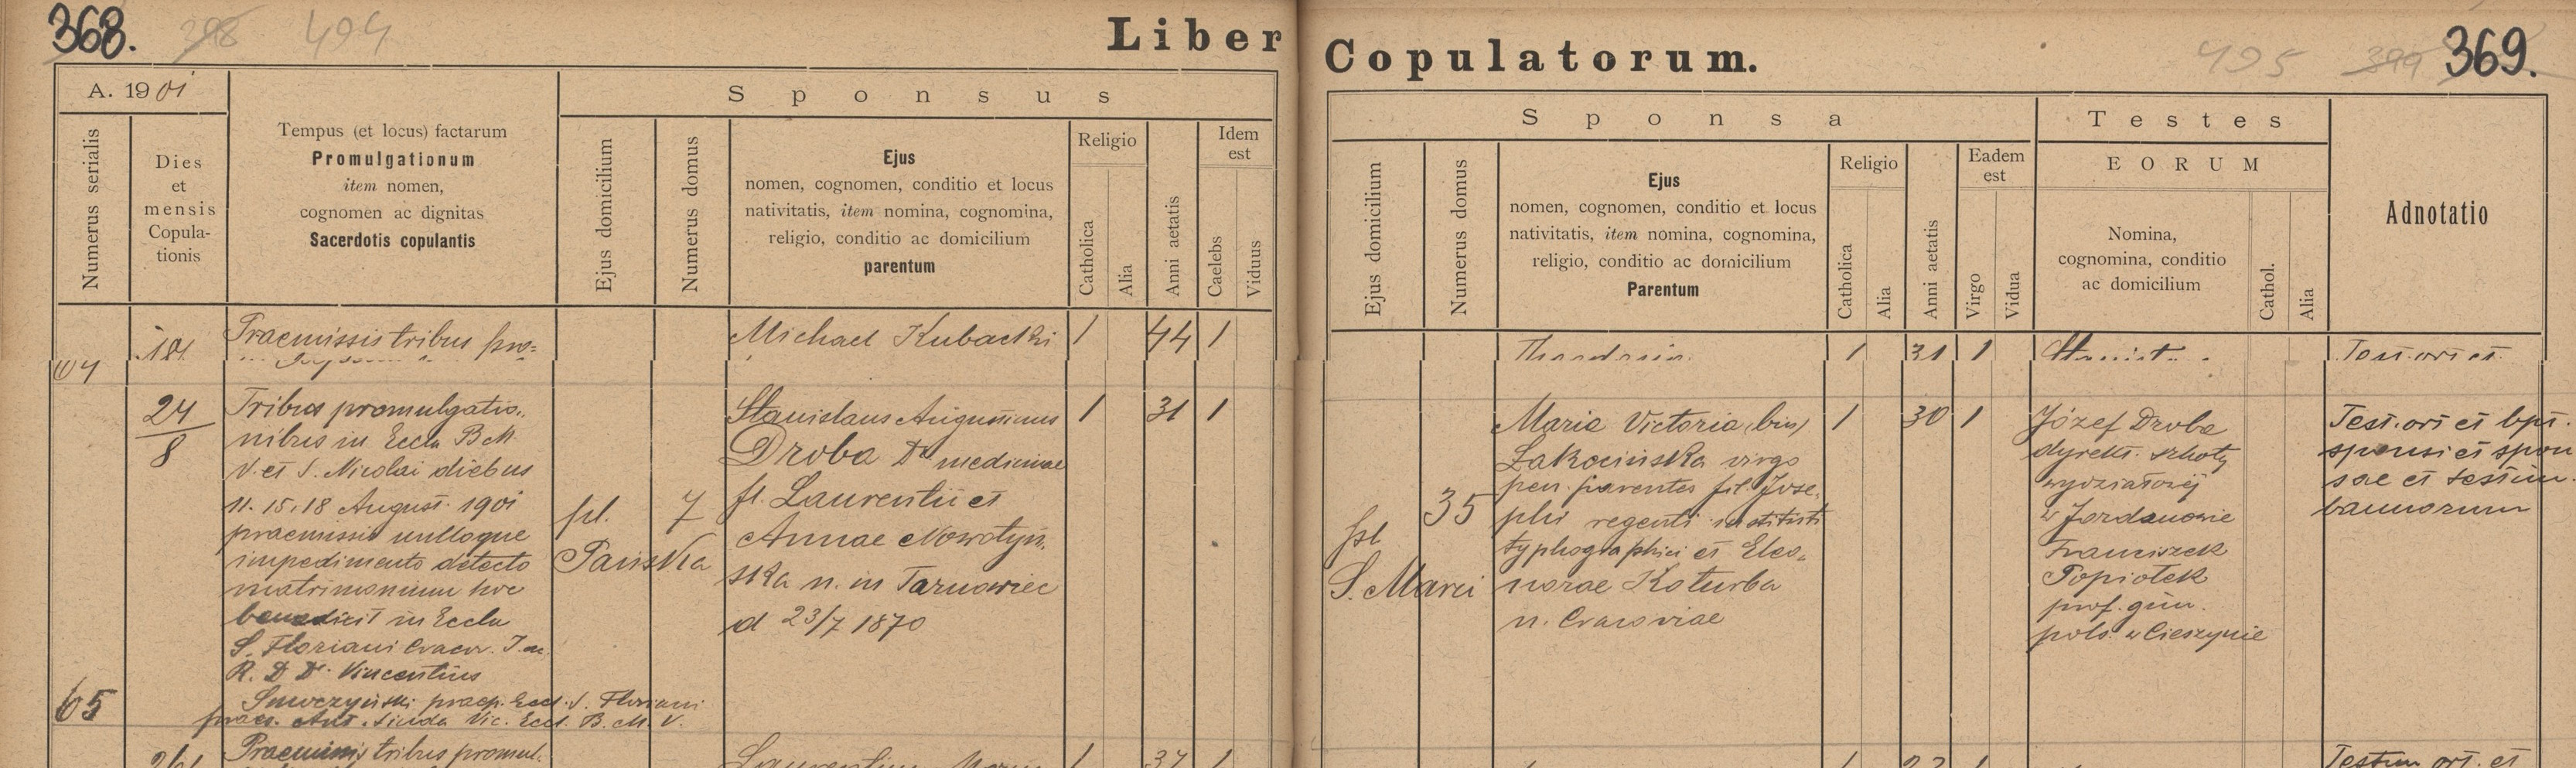 368. 398 494
Liber
A. 1901
Sponsus
Numerus serialis
Dies
et
mensis
Copula-
tionis
Tempus (et locus) factarum
Promulgationum
item nomen,
cognomen ac dignitas
Sacerdotis copulantis
Ejus domicilium
Numerus domus
Ejus
nomen, cognomen, conditio et locus
nativitatis, item nomina, cognomina,
religio, conditio ac domicilium
parentum
Religio
Catholica
Alia
Anni aetatis
Idem
est
Caelebs
Viduus
18
Praemissis tribus pro=
Michael Kubacki
1 44 1
64
24
8
Tribus promulgatio-
nibus in Eccla B M
V. et S. Nicolai diebus
11. 15. 18 August. 1901
praemissis nulloque
impedimento detecto
matrimonium hoc
benedixit in Eccla
S. Floriani Cracov.
R. D Dr. Vincentius
Smoczyński praep. Eccl. S. Floriani
praes. Ant. Vic. Eccl. B. M. V.
65
pl.
Pańska
7
Stanislaus Augustinus
Droba Dr medicinae
fl. Laurentii et
Annae Nowotyń-
ska n. in Tarnowiec
d 23/7 1870
1 31 1
Praemissis tribus promul-
Laurentius
1 37 1
Copulatorum.
495 399 369.
Sponsa
Ejus domicilium
Numerus domus
Ejus
nomen, cognomen, conditio et locus
nativitatis, item nomina, cognomina,
religio, conditio ac domicilium
Parentum
Religio
Catholica
Alia
Anni aetatis
Eadem
est
Virgo
Vidua
Testes
EORUM
Nomina,
cognomina, conditio
ac domicilium
Cathol.
Alia
Adnotatio
1 31 1
Test. ort et
pl
S. Marci
35
Maria Victoria (bin)
Łakocińska virgo
pen. parentes fil. Jose-
phi regenti instituti
typhographici et Eleo-
norae Koturba
n. Cracoviae
1 30 1
Józef Droba
dyrekt. szkoły
wydziałowej
w Jordanowie
Franciszek
Popiołek
prof. gim.
pols. w Cieszynie
Test. ort et bpt.
sponsi et spon
sae et testim.
bannorum
Testim ort. et